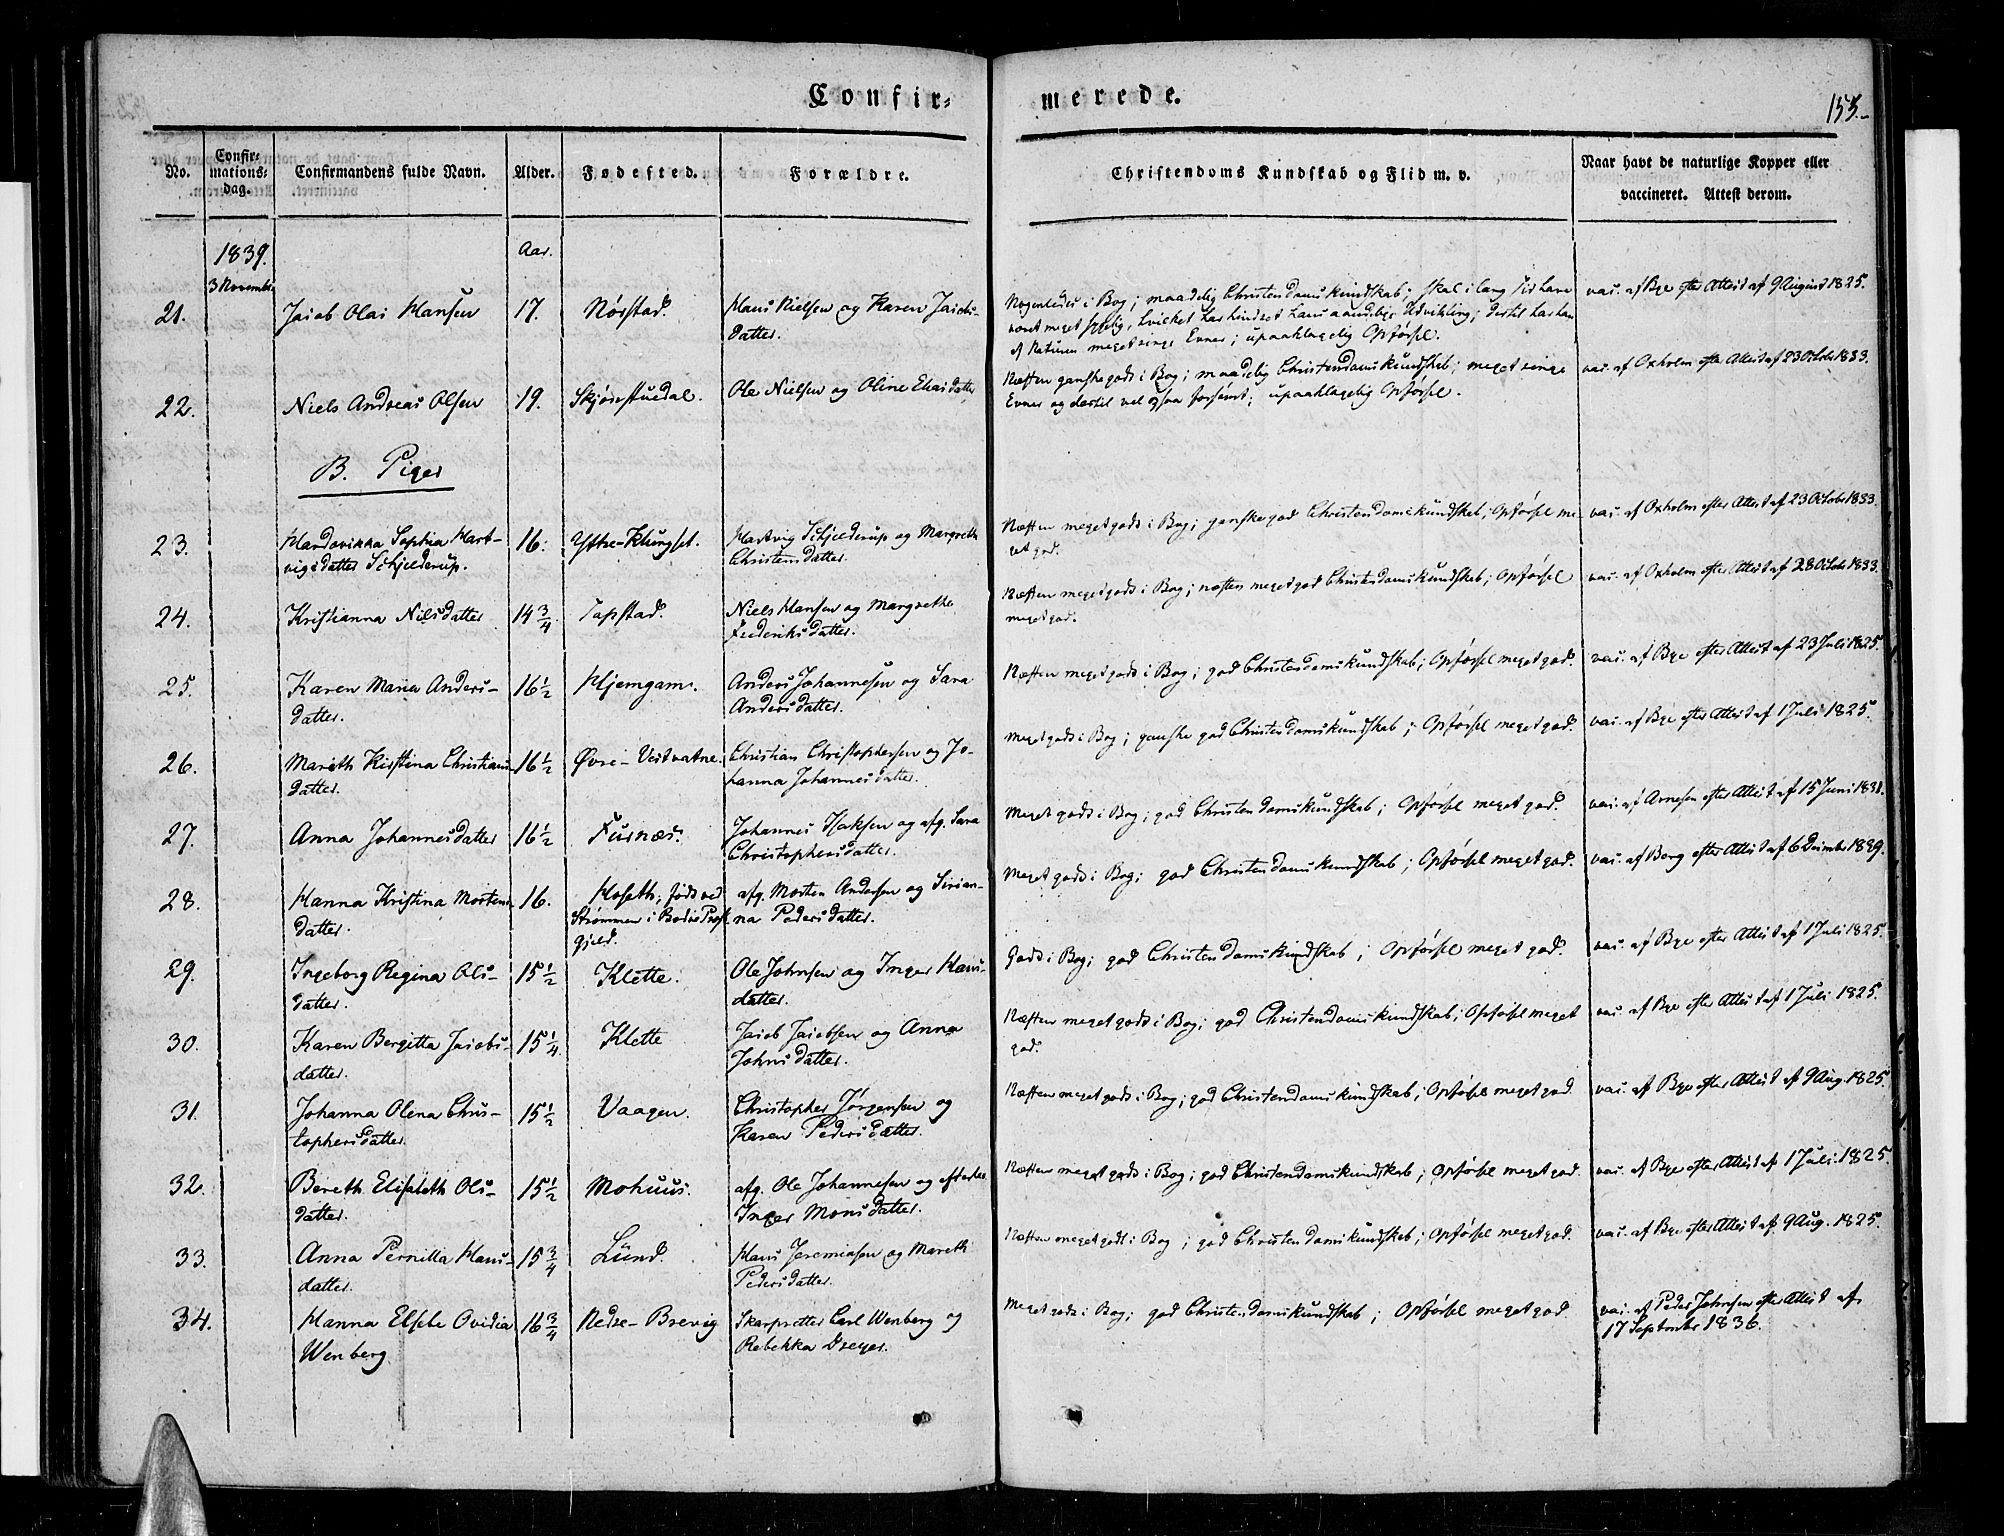 Confir-
merede.
155.
No.
Confir-
mations-
dag.
Confirmandens fulde Navn.
Alder.
Fødested.
Forældre.
Christendoms Kundskab og Flid m. v.
Naar havt de naturlige Kopper eller
vaccineret. Attest derom.
1839.
Aar.
3 November
21. Jacob Olai Hansen 17. Nørstad. Hans Nielsen og Karen Jacobs-
datter.
Nogenledes i Bog; maadelig Christendomskundskab; skal i lang Tid have
været meget sygelig, hvilket har hindret hans aandelige Udvikling; dertil har han
af Naturen meget ringe Evner; upaaklagelig Opførsel.
vac. af Bye efter Attest af 9 August 1825.
22. Niels Andreas Olsen 19. Skjønstuedal. Ole Nielsen og Oline Eliasdatter
Næsten ganske godt i Bog; maadelig Christendomskundskab; meget ringe
Evner og dertil vel ogsaa forsømt; upaaklagelig Opførsel.
vac. af Oxholm efter Attest af 23 Octobr 1833.
B. Piger
23. Hardovikka Sophia Hart-
vigsdatter Schjelderup. 16. Yttre-Klungset. Hartvig Schjelderup og Margrethe
Christensdatter.
Næsten meget godt i Bog; ganske god Christendomskundskab; Opførsel me-
get god.
vac. af Oxholm efter Attest af 23 Octobr 1833.
24. Kristianna Nilsdatter 14 3/4 Tapstad. Niels Hansen og Margrethe
Frederiksdatter.
Næsten meget godt i Bog; næsten meget god Christendomskundskab; Opførsel
meget god.
vac. af Oxholm efter Attest af 28 Octobr 1833.
25. Karen Maria Anders-
datter. 16 1/2 Hjemgam. Anders Johannesen og Sara
Andersdatter.
Næsten meget godt i Bog; god Christendomskundskab; Opførsel meget god.
vac. af Bye efter Attest af 23 Juli 1825.
26. Mareth Kristina Christians-
datter. 16 1/2 Øvre-Vestvatne. Christian Christophersen og Jo-
hanna Johannesdatter.
Meget godt i Bog; ganske god Christendomskundskab; Opførsel meget god.
vac. af Bye efter Attest af 1 Juli 1825.
27. Anna Johannesdatter 16 1/2 Furnæs. Johannes Isaksen og afg. Sara
Christophersdatter.
Meget godt i Bog; god Christendomskundskab; Opførsel meget god.
vac. af Arnesen efter Attest af 15 Juni 1831.
28. Hanna Kristina Mortens-
datter. 16. Hoseth; født ved
Strømmen i Bodø Præst-
gjeld. afg. Morten Andersen og Sirian-
na Pedersdatter.
Meget godt i Bog; god Christendomskundskab; Opførsel meget god.
vac. af Berg efter Attest af 6 Decembr 1839.
29. Ingeborg Regina Ols-
datter. 15 1/2 Klette. Ole Johnsen og Inger Hans-
datter.
Godt i Bog; god Christendomskundskab; Opførsel meget god.
vac. af Bye efter Attest af 1 Juli 1825.
30. Karen Bergitta Jacobs-
datter. 15 1/4 Klette Jacob Jacobsen og Anna
Johnsdatter.
Næsten meget godt i Bog; god Christendomskundskab; Opførsel meget
god.
vac. af Bye efter Attest af 1 Juli 1825.
31. Johanna Olena Chris-
tophersdatter. 15 1/2 Vaagen. Christopher Jørgensen og
Karen Pedersdatter.
Næsten meget godt i Bog; god Christendomskundskab; Opførsel meget god
vac. af Bye efter Attest af 9 Aug. 1825.
32. Bereth Elisabeth Ols-
datter. 15 1/2 Mohuus. afg. Ole Johannesen og efterlev.
Inger Monsdatter.
Næsten meget godt i Bog; god Christendomskundskab; Opførsel meget god.
vac. af Bye efter Attest af 1 Juli 1825.
33. Anna Pernilla Hans-
datter. 15 3/4 Lund. Hans Jeremiasen og Mareth
Pedersdatter.
Næsten meget godt i Bog; god Christendomskundskab; Opførsel meget god.
vac. af Bye efter Attest af 9 Aug. 1825.
34. Hanna Elsebe Ovidia
Wenberg 16 3/4 Nedre-Brevig Skarpretter Carl Wenberg og
Rebekka Dreyer.
Meget godt i Bog; god Christendomskundskab; Opførsel meget god
vac. af Peder Johnsen efter Attest af
17 September 1836.